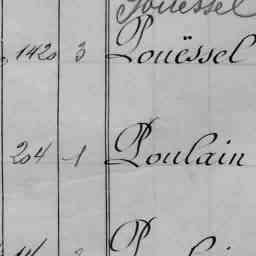 Pouëssel
1420 3 Pouëssel
204 1 Poulain